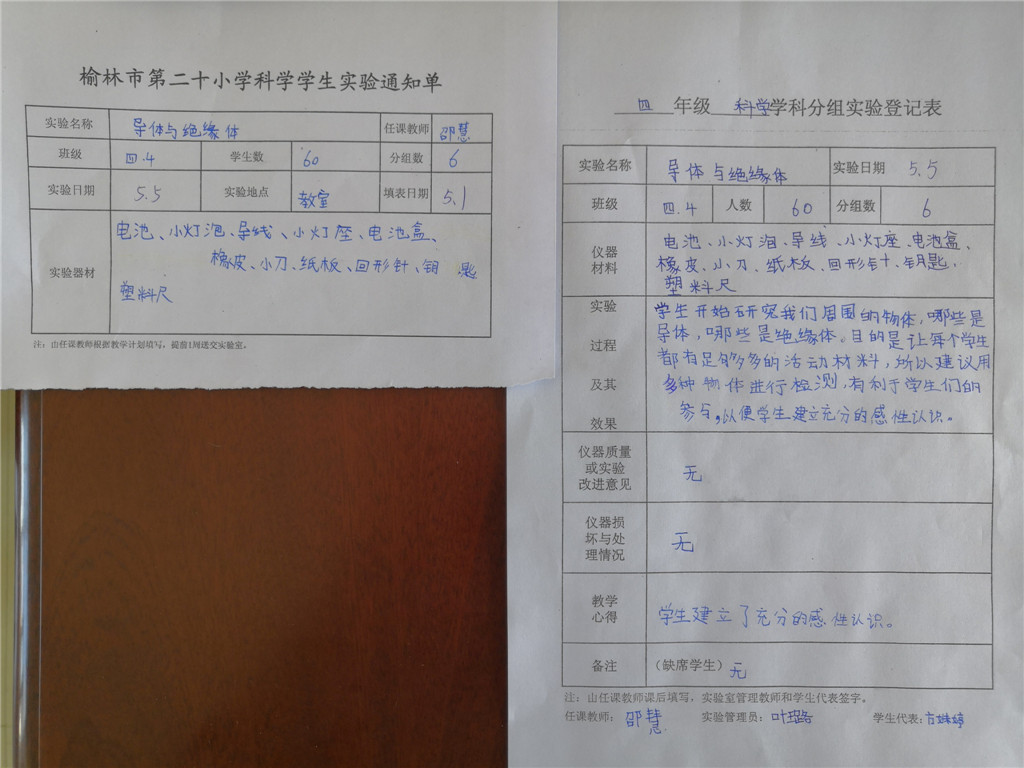 榆林市第二十小学科学学生实验通知单
实验名称 导体与绝缘体 任课教师 邵慧
班级 四.4 学生数 60 分组数 6
实验日期 5.5 实验地点 教室 填表日期 5.1
实验器材 电池、小灯泡、导线、小灯座、电池盒、
橡皮、小刀、纸板、回形针、钥匙
塑料尺
注：由任课教师根据教学计划填写，提前1周送交实验室。
四 年级 科学 学科分组实验登记表
实验名称 导体与绝缘体 实验日期 5.5
班级 四.4 人数 60 分组数 6
仪器材料 电池、小灯泡、导线、小灯座、电池盒、
橡皮、小刀、纸板、回形针、钥匙、
塑料尺
实验过程及其效果 学生开始研究我们周围的物体，哪些是
导体，哪些是绝缘体。目的是让每个学生
都有足够多的活动材料，所以建议用
多种物体进行检测，有利于学生们的
参与，以便学生建立充分的感性认识。
仪器质量或实验改进意见 无
仪器损坏与处理情况 无
教学心得 学生建立了充分的感性认识。
备注 （缺席学生）无
注：由任课教师课后填写，实验室管理教师和学生代表签字。
任课教师：邵慧 实验管理员：叶璐 学生代表：